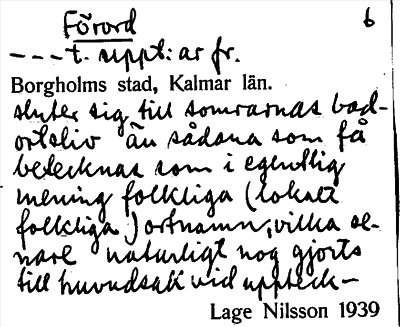 Förord 6
---t. uppt: ar fr.
Borgholms stad, Kalmar län.
sluter sig till somrarnas bad-
ortsliv än sådana som få
betecknas som i egentlig
mening folkliga (lokalt
folkliga) ortnamn, vilka se-
nare naturligt nog gjorts
till huvudsak vid uppteck-
Lage Nilsson 1939